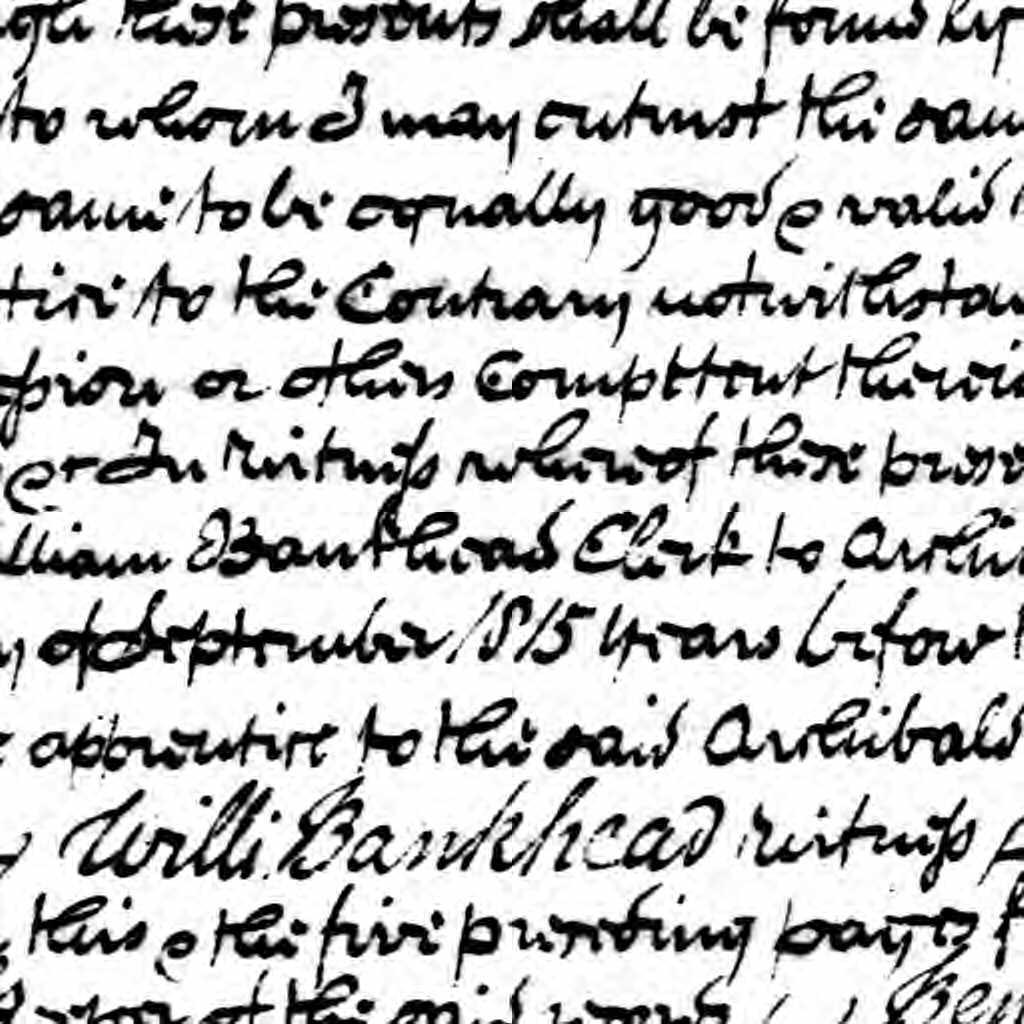 these presents shall be found
to whom I may entrust the same
same to be equally good & valid
to the Contrary notwithstan
or others Compttent therein
&c In Witness whereof these prese
lliam Bankhead Clerk to Archi
of September 1815 Years before
apprentice to the said Archibald
Willi. Bankhead witness
this & the five preceding pages
of the said